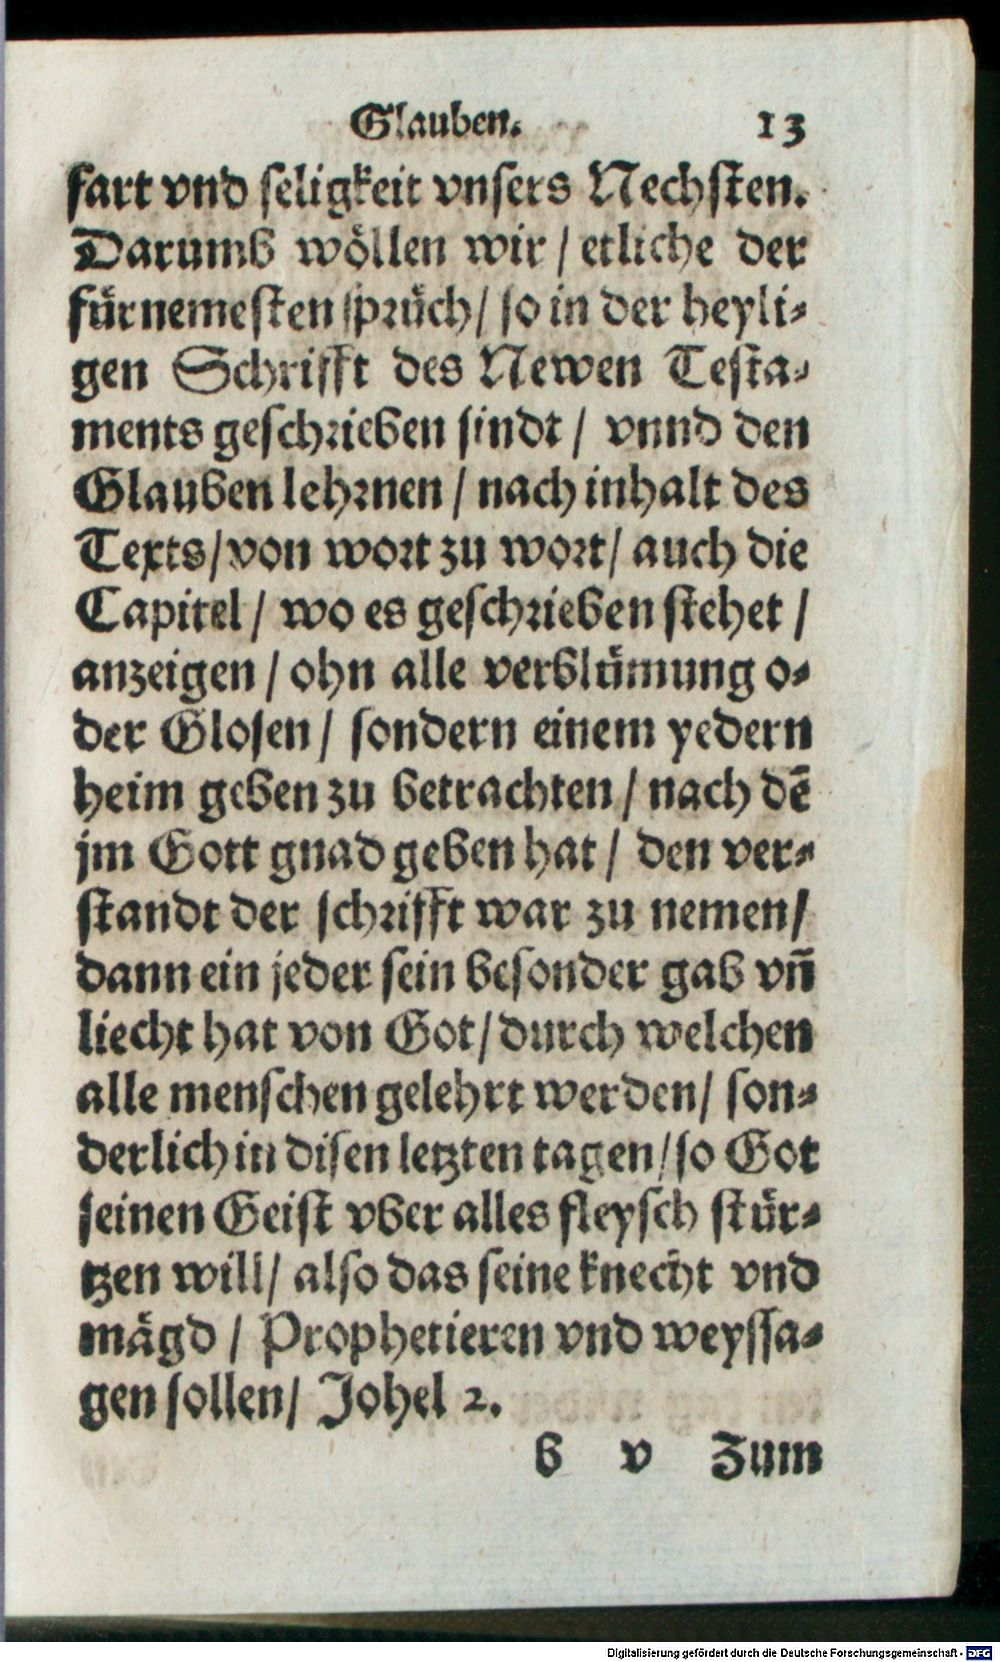 Glauben. 13
fart vnd seligkeit vnsers Nechsten.
Darumb wöllen wir / etliche der
fürnemesten sprüch / so in der heyli-
gen Schrifft des Newen Testa-
ments geschrieben sindt / vnnd den
Glauben lehrnen / nach inhalt des
Texts / von wort zu wort / auch die
Capitel / wo es geschrieben stehet /
anzeigen / ohn alle verblümung o-
der Glosen / sondern einem yedern
heim geben zu betrachten / nach dẽ
jm Gott gnad geben hat / den ver-
standt der schrifft war zu nemen /
dann ein jeder sein besonder gab vñ
liecht hat von Got / durch welchen
alle menschen gelehrt werden / son-
derlich in disen letzten tagen / so Got
seinen Geist vber alles fleysch stür-
tzen will / also das seine knecht vnd
mägd / Prophetieren vnd weyssa-
gen sollen / Johel 2.
b v Zum
Digitalisierung gefördert durch die Deutsche Forschungsgemeinschaft - DFG